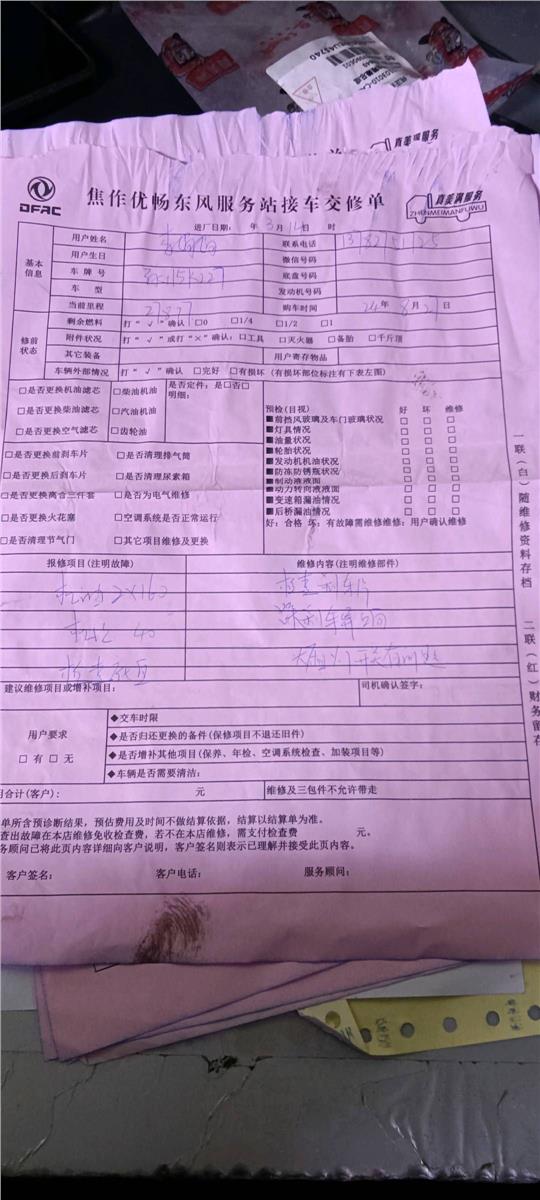 DFAC
焦作优畅东风服务站接车交修单
真美满服务
ZHENMEIMANFUWU
进厂日期： 年 3 月 14 日 时
基本信息
用户姓名
联系电话
用户生日
微信号码
车牌号
底盘号码
车型
发动机号码
当前里程
购车时间 24 年 8 月 日
修前状态
剩余燃料 打“√”确认 □0 □1/4 □1/2 □1
附件状况 打“√”或打“×”确认：□工具 □灭火器 □备胎 □千斤顶
其它装备 用户寄存物品
车辆外部情况 打“√”确认 □完好 □有损坏（有损坏部位标注有下表左图）
□是否更换机油滤芯 □柴油机油 是否定件：是□否□
明细：
□是否更换柴油滤芯 □汽油机油
□是否更换空气滤芯 □齿轮油
预检(目视) 好 坏 维修
■前挡风玻璃及车门玻璃状况 □ □ □
■灯具情况 □ □ □
■油量状况 □ □ □
■轮胎状况 □ □ □
■发动机机油状况 □ □ □
■防冻防锈瓶状况 □ □ □
■制动液液面 □ □ □
■动力转向液液面 □ □ □
■变速箱漏油情况 □ □ □
■后桥漏油情况 □ □ □
好：合格 坏：有故障需维修维修：用户确认维修
□是否更换前刹车片 □是否清理排气筒
□是否更换后刹车片 □是否清理尿素箱
□是否更换离合三件套 □是否为电气维修
□是否更换火花塞 □空调系统是否正常运行
□是否清理节气门 □其它项目维修及更换
报修项目(注明故障) 维修内容(注明维修部件)
检查刹车片
建议维修项目或增补项目： 司机确认签字：
用户要求
□ 有 □ 无
◆交车时限
◆是否归还更换的备件(保修项目不退还旧件)
◆是否增补其他项目(保养、年检、空调系统检查、加装项目等)
◆车辆是否需要清洁：
合计(客户)： 元 维修及三包件不允许带走
单所含预诊断结果，预估费用及时间不做结算依据，结算以结算单为准。
查出故障在本店维修免收检查费，若不在本店维修，需支付检查费 元。
务顾问已将此页内容详细向客户说明，客户签名则表示已理解并接受此页内容。
客户签名： 客户电话： 服务顾问：
一联（白）随维修资料存档
二联（红）财务留存